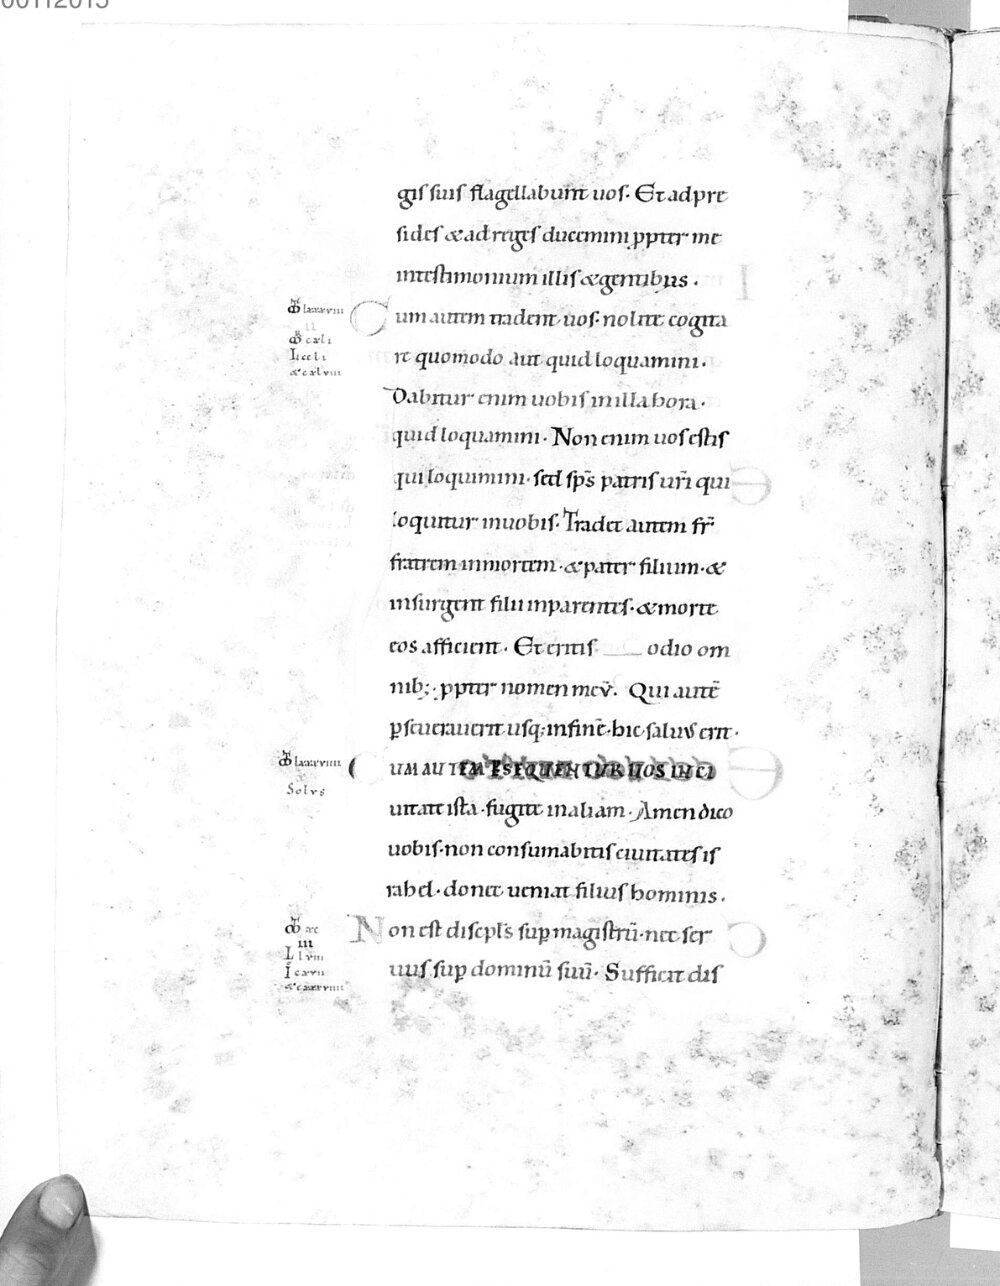 00112015
gis suis flagellabunt uos. Et ad pre
sides & ad reges ducemini ppter me
in testimonium illis & gentibus.
Cum autem tradent uos. nolite cogita
re quomodo aut quid loquamini.
Dabitur enim uobis in illa hora.
quid loquamini. Non enim uos estis
qui loquimini. sed sps̄ patris ur̄i qui
loquitur in uobis. Tradet autem fr̄
fratrem in mortem. & pater filium. &
insurgent filii in parentes. & morte
eos afficient. Et eritis odio om
nib; ppter nomen meū. Qui autē
pseuerauerit usq; in finē. hic saluus erit.
CUM AUTEM PSEQUENTUR UOS IN CI
uitate ista. fugite in aliam. Amen dico
uobis. non consumabitis ciuitates is
rahel. donec ueniat filius hominis.
Non est discipl̄s sup magistrū. nec ser
uus sup dominū suū. Sufficit dis
lxxxviii
cxli
L ccli
lxxxviiii
Solus
xc
iii
L lviii
I cxvii
cxxxviiii